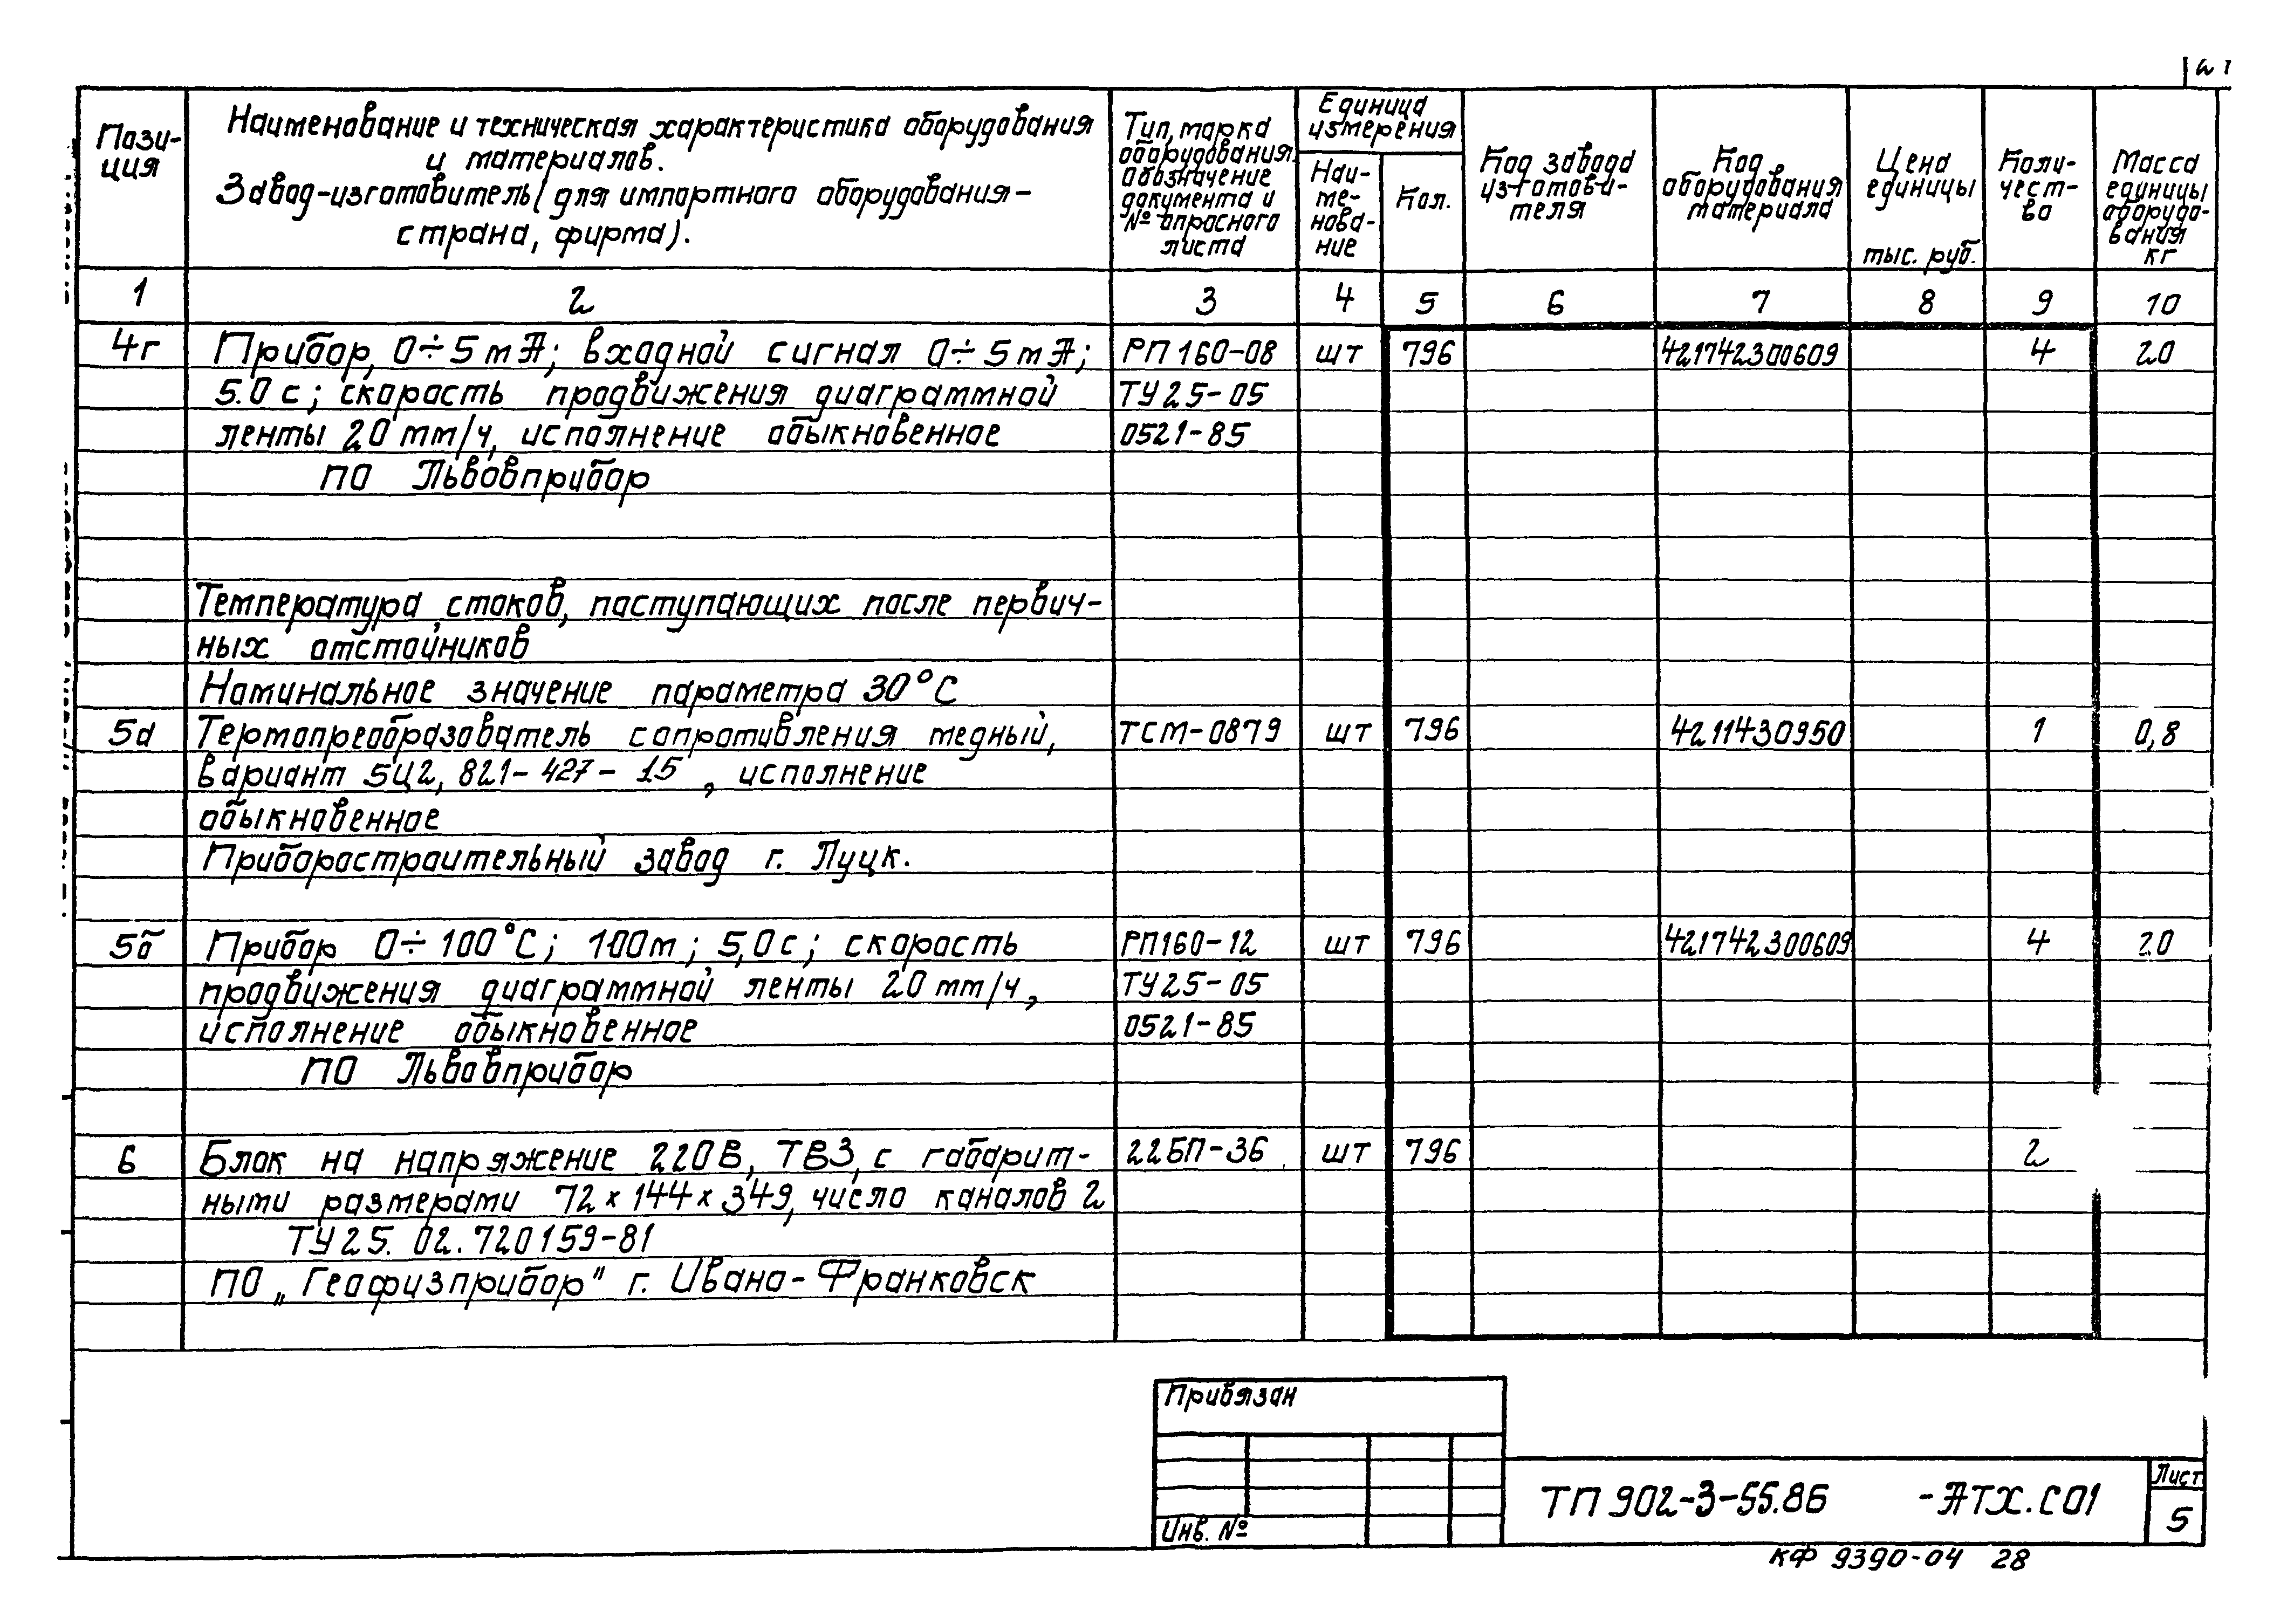 Пози-
ция
Наименование и техническая характеристика оборудования
и материалов.
Завод-изготовитель (для импортного оборудования-
страна, фирма).
Тип, марка
оборудования.
обозначение
документа и
№ опросного
листа
Единица
измерения
Наи-
ме-
нова-
ние
Кол.
Код завода
изготови-
теля
Код
оборудования
материала
Цена
единицы
тыс. руб.
Коли-
чест-
во
Масса
единицы
оборудо-
вания
кг
1 2 3 4 5 6 7 8 9 10
4г Прибор, 0÷5mA; входной сигнал 0÷5mA; РП160-08 шт 796 421742300609 4 20
5.0 с; скорость продвижения диаграммной ТУ25-05
ленты 20 мм/ч, исполнение обыкновенное 0521-85
ПО Львовприбор
Температура стоков, поступающих после первич-
ных отстойников
Номинальное значение параметра 30°С
5а Термопреобразователь сопротивления медный, ТСМ-0879 шт 796 4211430950 1 0,8
вариант 5Ц2, 821-427-15, исполнение
обыкновенное
Приборостроительный завод г. Луцк.
5б Прибор 0÷100°С; 100м; 5,0с; скорость РП160-12 шт 796 421742300609 4 20
продвижения диаграммной ленты 20 мм/ч, ТУ25-05
исполнение обыкновенное 0521-85
ПО Львовприбор
6 Блок на напряжение 220В, ТВ3, с габарит- 22БП-36 шт 796 2
ными размерами 72×144×349, число каналов 2
ТУ25.02.720159-81
ПО „Геофизприбор" г. Ивано-Франковск
Привязан
Инв. №
ТП 902-3-55.86 -АТХ.С01
Лист
5
КФ 9390-04 28